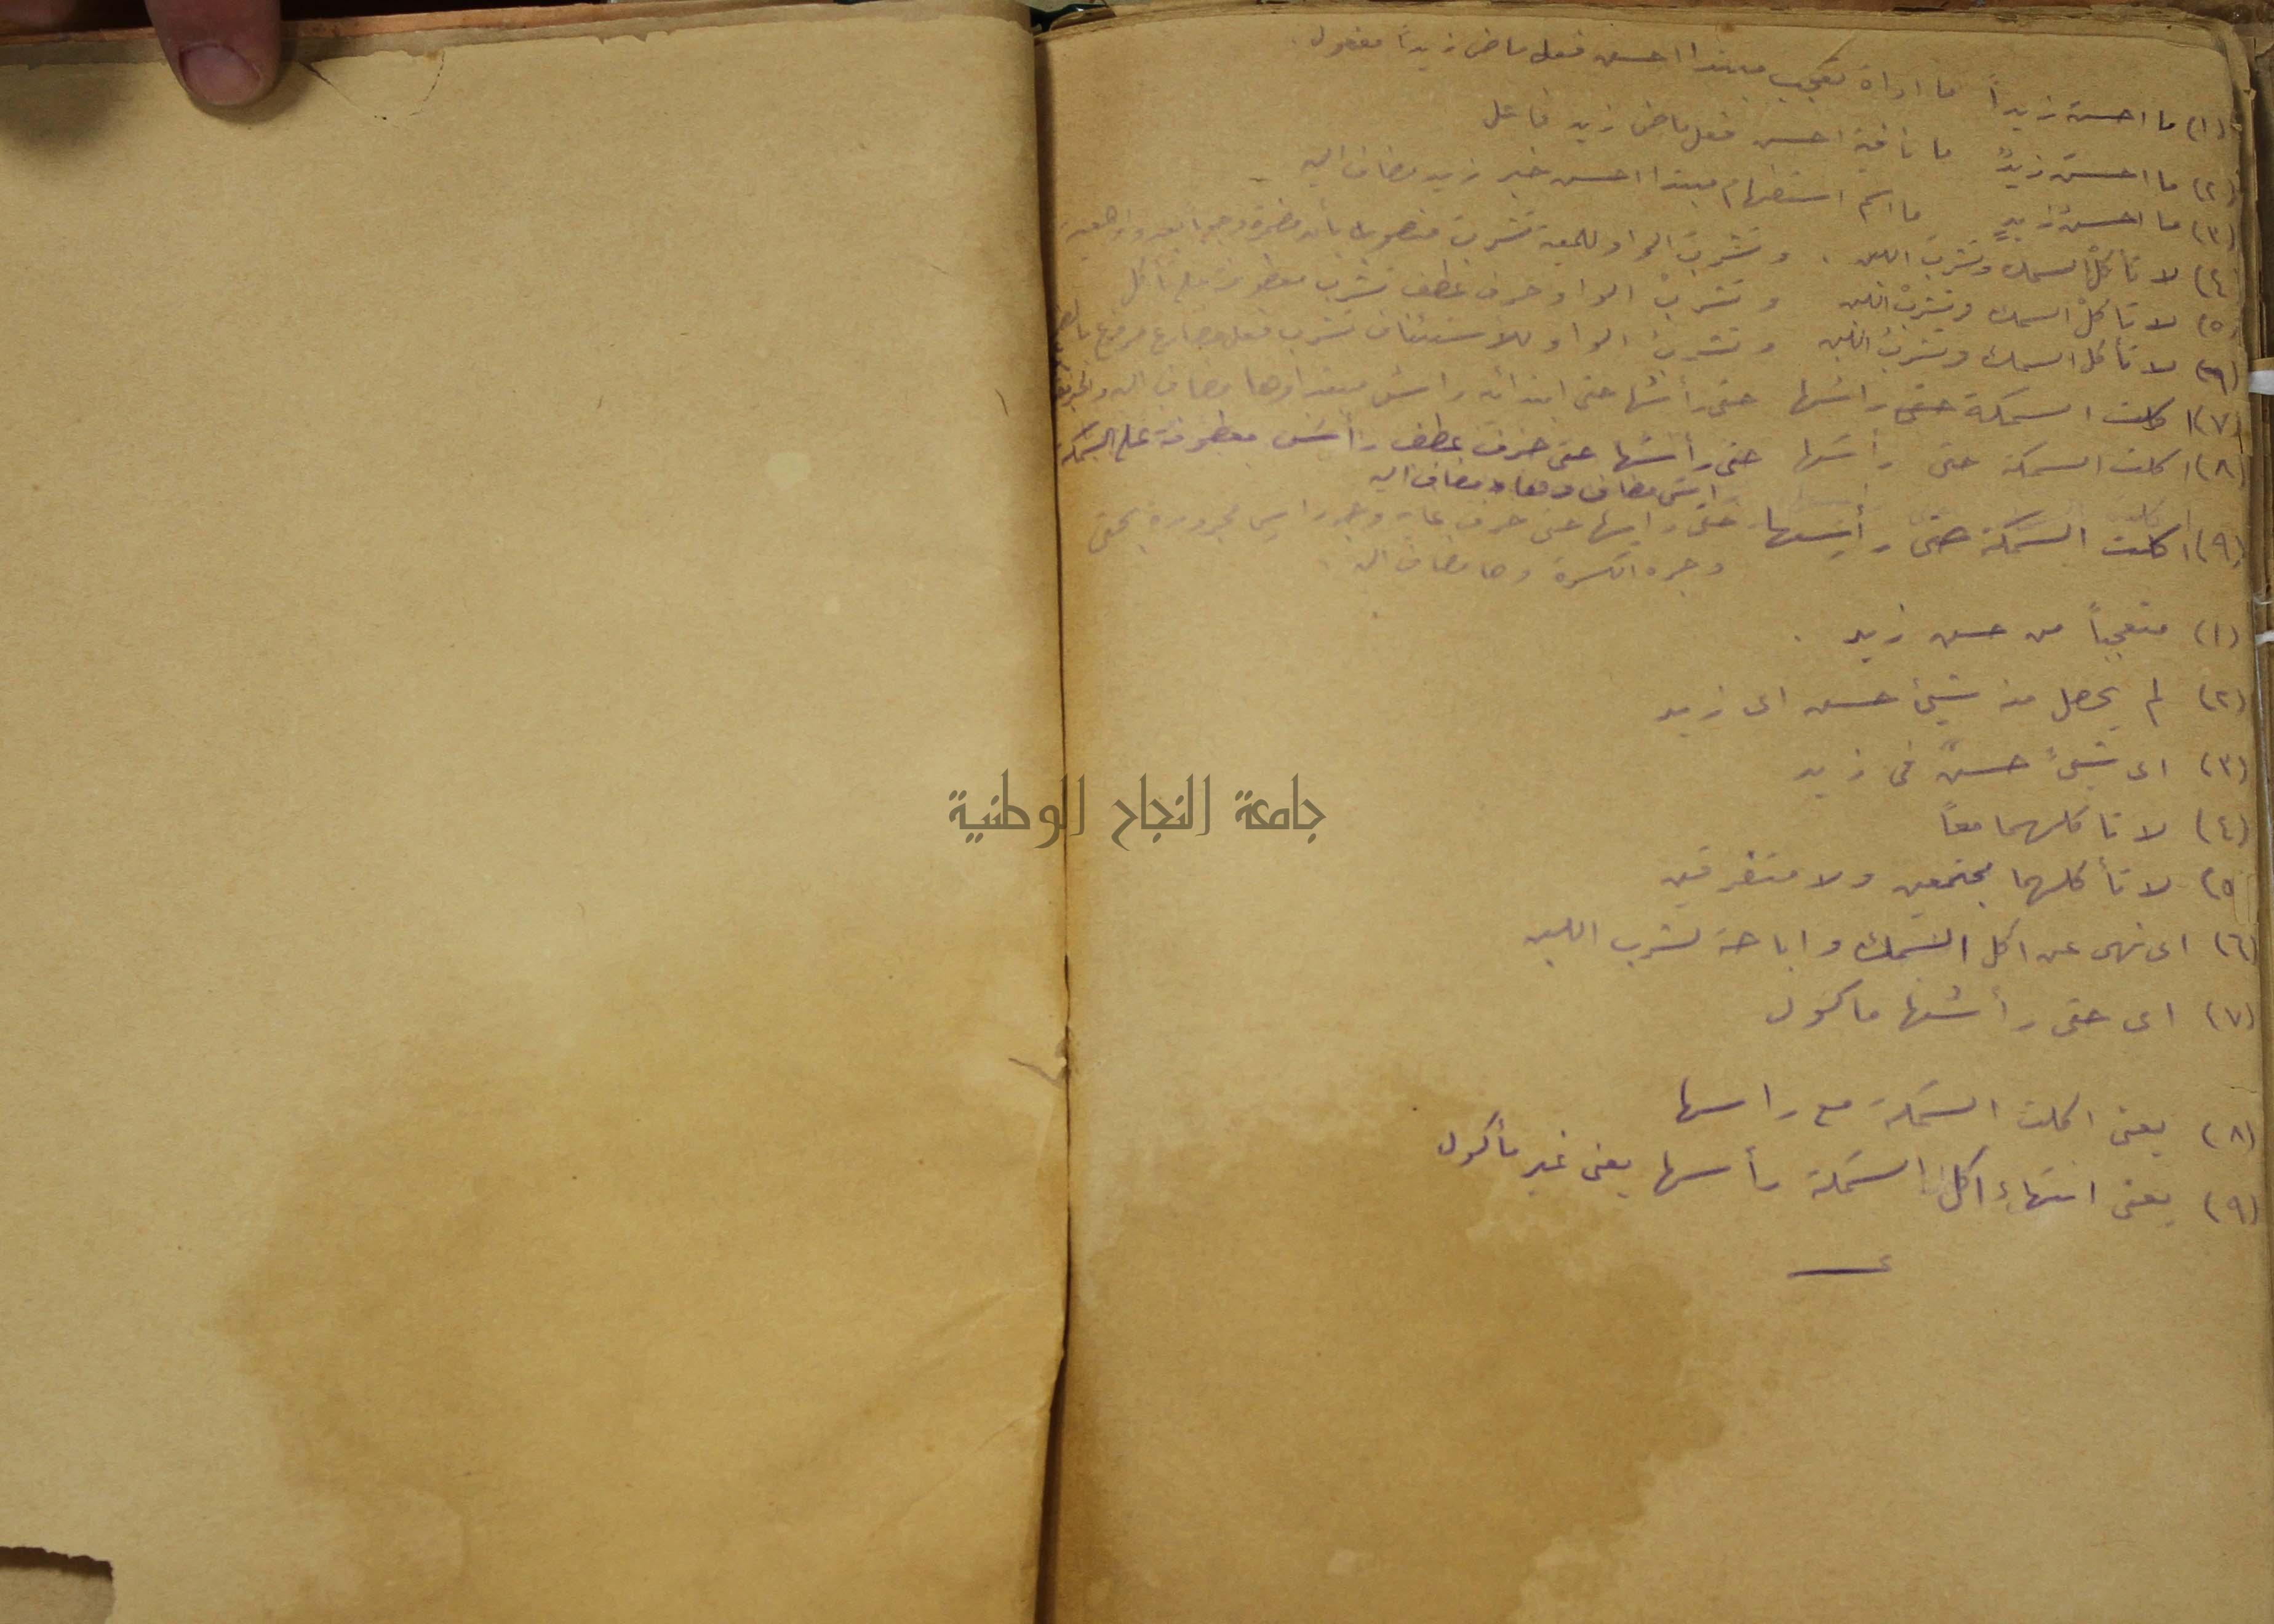 (١) ما احسنَ زيداً ما اداة تعجب مبتدا احسن فعل ماض زيداً مفعول.
(٢) ما احسنَ زيدٌ ما نافية احسن فعل ماض زيد فاعل
(٣) ما احسنُ زيدٍ ما اسم استفهام مبتدا احسن خبر زيد مضاف اليه
(٤) لا تأكلْ السمك وتشربَ اللبن. وتشربَ الواو للمعية تشربَ منصوب بأن مضمرة وجوباً بعد واو المعية
(٥) لا تأكلْ السمك وتشربْ اللبن وتشربْ الواو حرف عطف تشرب معطوفة على تأكل
(٦) لا تأكل السمك وتشربُ اللبن وتشربُ الواو للاستئناف تشرب فعل مضارع مرفوع بالضم
(٧) اكلت السمكة حتى راسُها حتى رأسُها حتى ابتدائه راسُ مبتدا وها مضاف اليه
(٨) اكلت السمكة حتى رأسَها حتى رأسَها حتى حرف عطف رأسَ معطوفة على السمكة
راسَ مضاف وها مضاف اليه
(٩) اكلت السمكة حتى رأسِها حتى راسِها حتى حرف غاية وجر راس مجرورة بحتى
وجره الكسرة وها مضاف اليه.
(١) متعجباً من حسن زيد.
(٢) لم يحصل منه شيئ حسن اى زيد
(٣) اى شئ حسنٌ في زيد
(٤) لا تاكلهما معاً
(٥) لا تأكلهما مجتمعين ولا متفرقين
(٦) اى نهى عن اكل السمك واباحة لشرب اللبن
(٧) اى حتى رأسُها ماكول
(٨) يعنى اكلت السمكة مع راسها
(٩) يعنى انتهاء اكل السمكة رأسها يعنى غير مأكول
جامعة النجاح الوطنية